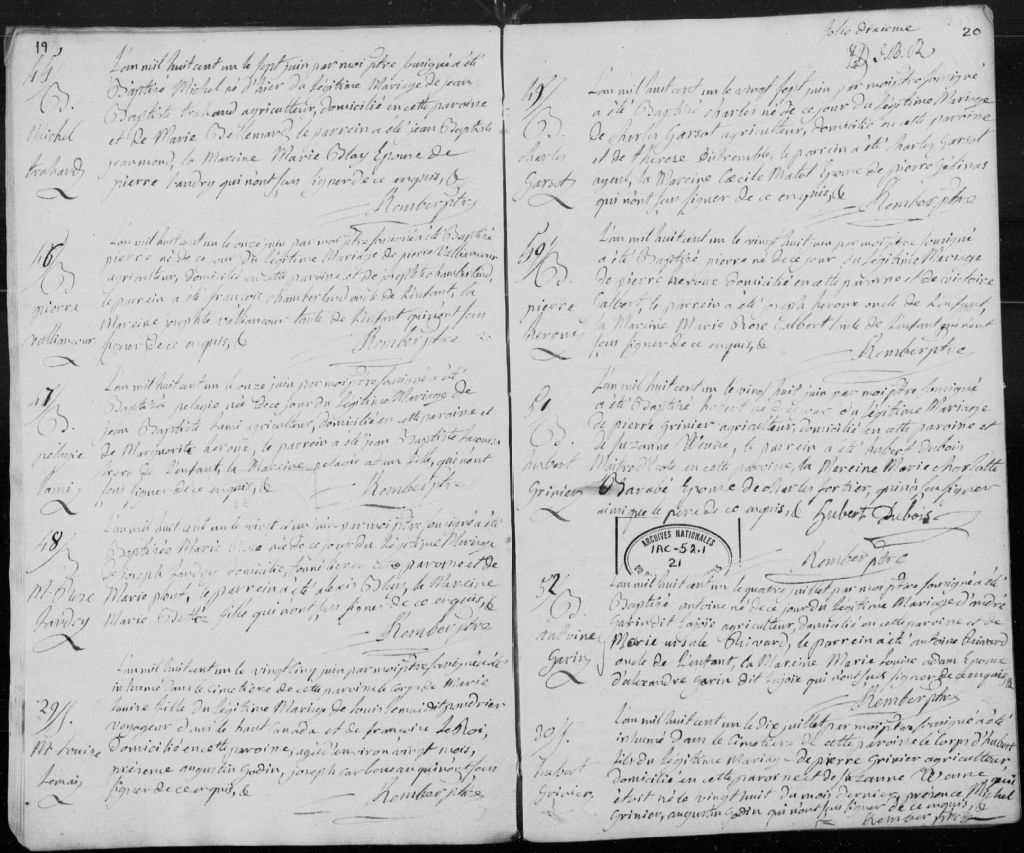 19
45
B.
Michel
trahand
L'an mil huit cent un le sept juin par moi ptre sousigné a été
Baptisé Michel né d'hier du légitime Mariage de jean
Baptiste trahand agriculteur, domicilié en cette paroisse
et de Marie Bellemard, le parrein a été jean Baptiste
jeanmond, la Mareine Marie Blay Epouse de
pierre Landry qui n'ont sçu signer de ce enquis, &
Kember ptre
46
B
pierre
vallincour
L'an mil huit cent un le onze juin par moi ptre sousigné a été Baptisé
pierre né de ce jour du légitime Mariage de pierre vallincour
agriculteur, domicilié en cette paroisse et de josephte chamberland,
le parrein a été françois chamberland oncle de l'enfant, la
Mareine josephte vallincour tante de l'enfant qui n'ont sçu
signer de ce enquis, &
Kember ptre
47
B.
pélagie
Lami
L'an mil huit cent un le onze juin par moi ptre sousigné a été
Baptisée pelagie née de ce jour du légitime Mariage de
jean Baptiste Lami agriculteur, domicilié en cette paroisse et
de Marguerite, le parrein a été jean Baptiste
frere de l'enfant, la Mareine pelagie fille, qui n'ont
sçu signer de ce enquis, &
Kember ptre
48
B
M. Rose
Landry
L'an mil huit cent un le vingt juin par moi ptre sousigné a été
Baptisée Marie Rose née de ce jour du légitime Mariage
de joseph Landry domicilié, en cette paroisse et de
Marie, le parrein a été alexis Blay, la Mareine
Marie fille qui n'ont sçu signer de ce enquis, &
Kember ptre
29 S.
M. Louise
Lemai
L'an mil huit cent un le vingt cinq juin par moi ptre sousigné a été
inhumé dans le cimetiere de cette paroisse le corps de Marie
Louise fille du légitime Mariage de Louis Lemai dit pondrier
voyageur dans le haut Canada et de françoise LeRoi,
domicilié en cette paroisse, agée d'environ vingt mois,
présence augustin Godin, joseph carboneau qui n'ont sçu
signer de ce enquis, &
Kember ptre
folio dixieme
20
49
B.
charles
Garsot
L'an mil huit cent un le vingt sept juin par moi ptre sousigné
a été Baptisé charles né de ce jour du légitime Mariage
de charles Garsot agriculteur, domicilié en cette paroisse
et de thérese, le parrein a été charles Garsot
ayeul, la Mareine Cecile Malot Epouse de pierre Gélinas
qui n'ont sçu signer de ce enquis, &
Kember ptre
50
B.
pierre
herone
L'an mil huit cent un le vingt huit juin par moi ptre sousigné
a été Baptisé pierre né de ce jour du légitime Mariage
de pierre herone domicilié en cette paroisse et de victoire
Galbert, le parrein a été joseph herone oncle de l'enfant,
la Mareine Marie Rose Galbert tante de l'enfant qui n'ont
sçu signer de ce enquis, &
Kember ptre
51
B.
hubert
Grinier
L'an mil huit cent un le vingt huit juin par moi ptre sousigné
a été Baptisé hubert né de ce jour du légitime Mariage
de pierre Grinier agriculteur, domicilié en cette paroisse et
de Suzanne, le parrein a été hubert Dubois
Maitre d'Ecole en cette paroisse, la Mareine Marie charlotte
Barabé Epouse de charles fortier, qui n'a sçu signer
ainsi que le pere de ce enquis, & hubert Dubois
Kember ptre
ARCHIVES NATIONALES
1AC-52.1
21
52
B.
antoine
Garin
L'an mil huit cent un le quatre juillet par moi ptre sousigné a été
Baptisé antoine né de ce jour du légitime Mariage d'andré
Garin dit Lajoie agriculteur, domicilié en cette paroisse et de
Marie ursule Rivard, le parrein a été antoine Rivard
oncle de l'enfant, la Mareine Marie Louise adam Epouse
d'alexandre Garin dit Lajoie qui n'ont sçu signer de ce enquis, &
Kember ptre
30 S.
hubert
Grinier
L'an mil huit cent un le Dix juillet par moi ptre sousigné a été
inhumé dans le Cimetiere de cette paroisse le corps d'hubert
fils du légitime Mariage de pierre Grinier agriculteur
domicilié en cette paroisse et de Suzanne qui
étoit né le vingt huit du mois dernier, présence Michel
Grinier, augustin Godin qui n'ont sçu signer de ce enquis, &
Kember ptre